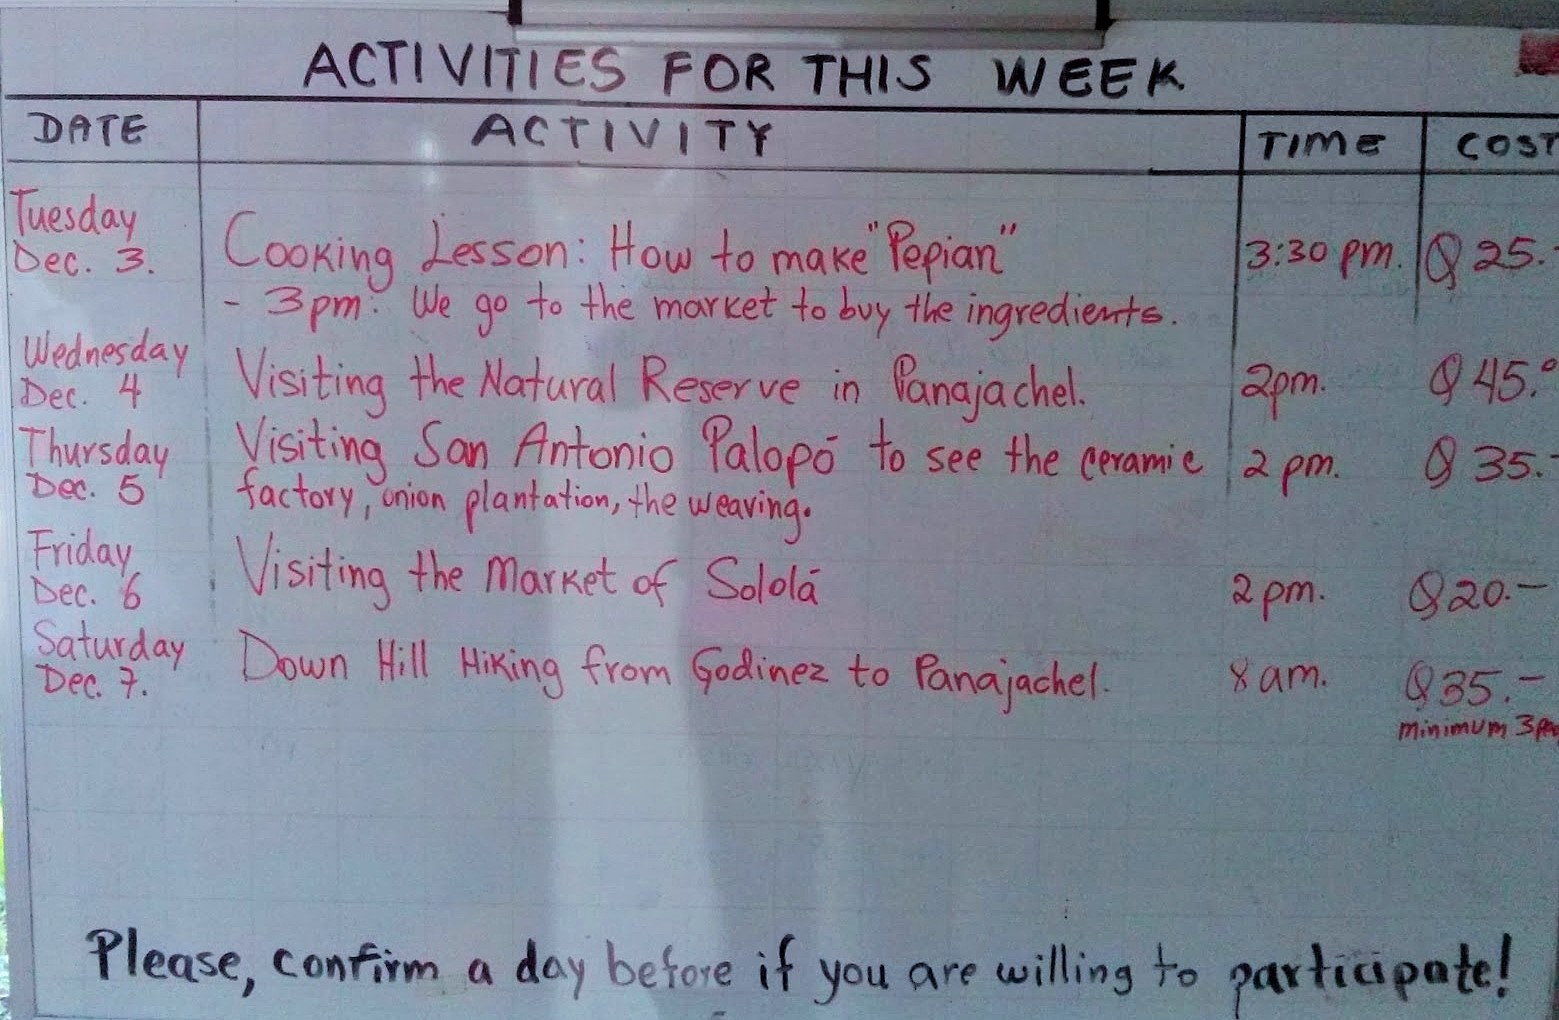 ACTIVITIES FOR THIS WEEK
DATE ACTIVITY TIME COST
Tuesday
Dec. 3. Cooking Lesson: How to make "Pepian" 3:30 pm. Q 25.-
- 3pm: We go to the market to buy the ingredients.
Wednesday
Dec. 4 Visiting the Natural Reserve in Panajachel. 2pm. Q 45.º
Thursday Visiting San Antonio Palopó to see the ceramic 2 pm. Q 35.-
Dec. 5 factory, onion plantation, the weaving.
Friday
Dec. 6 Visiting the Market of Sololá 2 pm. Q20.-
Saturday
Dec. 7. Down Hill Hiking from Godinez to Panajachel. 8 am. Q35.-
minimum 3
Please, confirm a day before if you are willing to participate!